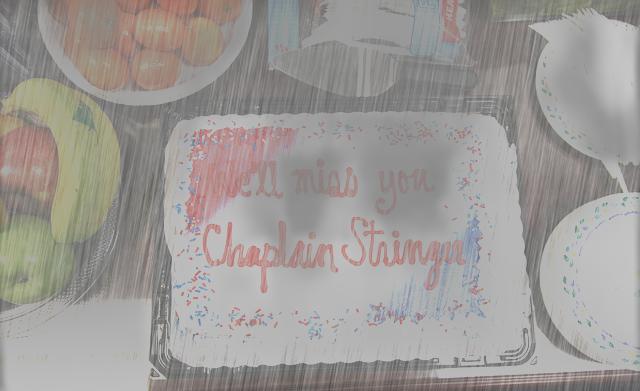 We'll miss you
Chaplain Stringer